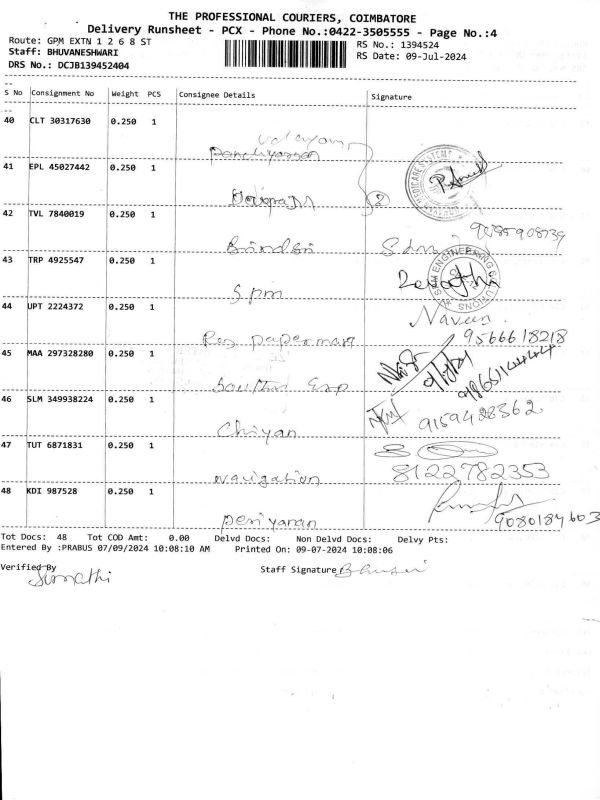 THE PROFESSIONAL COURIERS, COIMBATORE
Delivery Runsheet - PCX - Phone No.:0422-3505555 - Page No.:4
Route: GPM EXTN 1 2 6 8 ST
RS No.: 1394524
Staff: BHUVANESHWARI
RS Date: 09-Jul-2024
DRS No.: DCJB139452404
S No Consignment No Weight PCS Consignee Details Signature
40 CLT 30317630 0.250 1
41 EPL 45027442 0.250 1
MEDICARE SYSTEMS
2
42 TVL 7840019 0.250 1
43 TRP 4925547 0.250 1
ENGINEERING
Revathi
S.pm
44 UPT 2224372 0.250 1
Naveen
9566618218
45 MAA 297328280 0.250 1
46 SLM 349938224 0.250 1
9159428362
Chiyan
47 TUT 6871831 0.250 1
8122782353
navigation
48 KDI 987528 0.250 1
periyanan
Tot Docs: 48 Tot COD Amt: 0.00 Delvd Docs: Non Delvd Docs: Delvy Pts:
Entered By :PRABUS 07/09/2024 10:08:10 AM Printed On: 09-07-2024 10:08:06
Verified By
Sumathi
Staff Signature